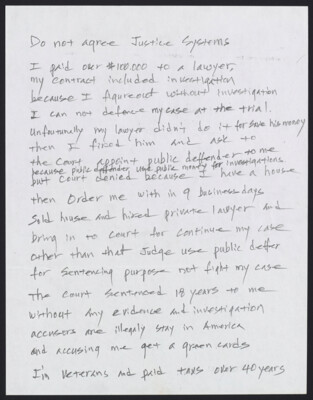 Do not agree Justice Systems
I paid over $100.000 to a lawyer,
my contract included investigation
because I figureout without investigation
I can not defence my case at the trial.
Unfortunally my lawyer didn't do it for save his money
then I fired him and ask to
the court appoint public deffender to me
because public deffender use public money for investigations
but court denied because I have a house
then Order me with in 9 business days
sold house and hired private lawyer and
bring in to court for continue my case
other than that Judge use public deffer
for sentencing purpose not fight my case
The court sentenced 18 years to me
without any evidence and investigation
accusers are illegally stay in America
and accusing me get a green cards
I'm Veterans and paid taxs over 40 years